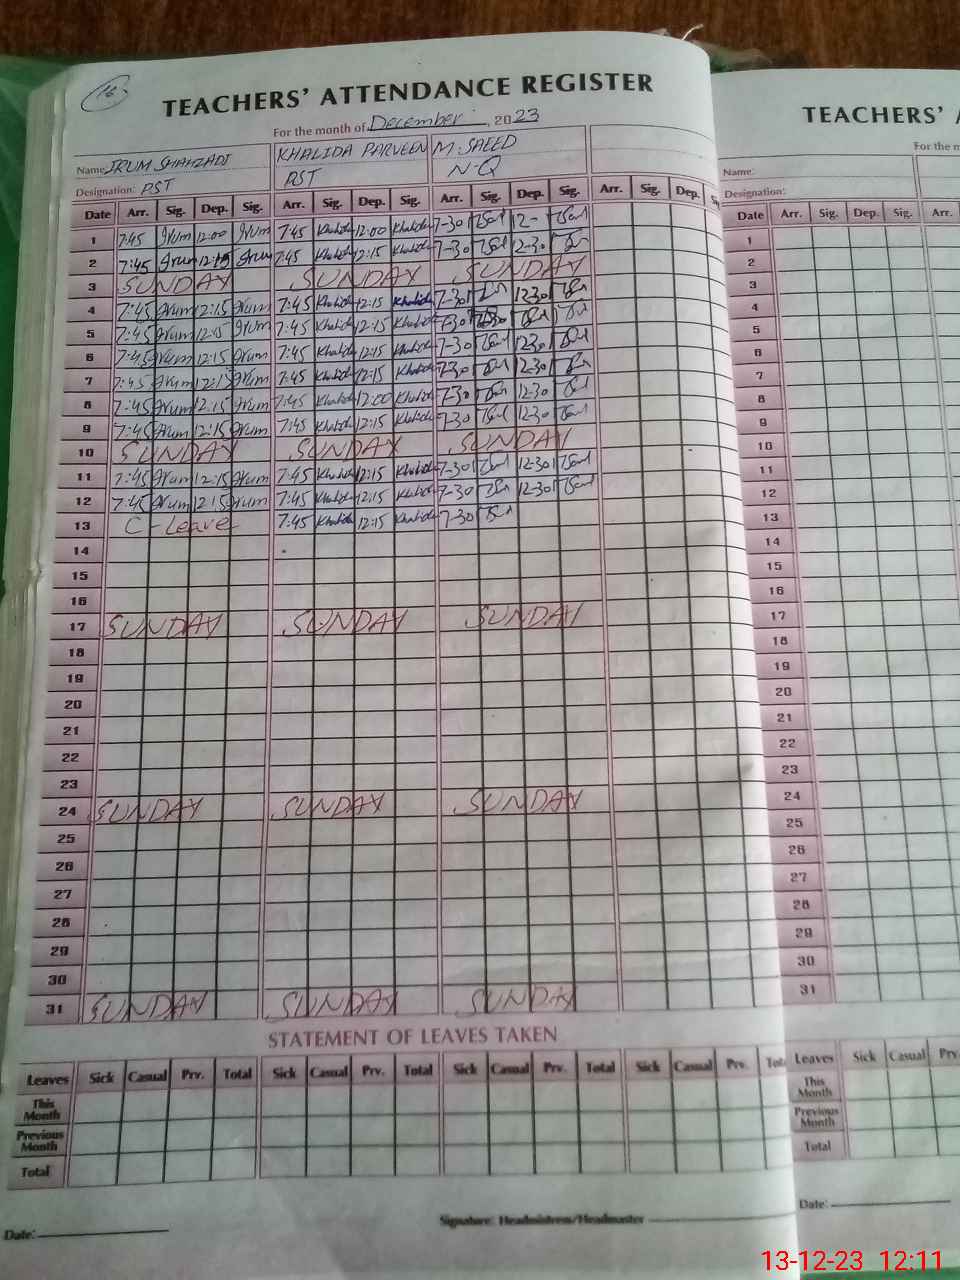 16
TEACHERS' ATTENDANCE REGISTER
For the month of December, 2023
Name: IRUM SHAHZADI KHALIDA PARVEEN M. SAEED
Designation: PST PST N-Q
Date Arr. Sig. Dep. Sig. Arr. Sig. Dep. Sig. Arr. Sig. Dep. Sig. Arr. Sig. Dep.
1 7:45 Irum 12:00 Irum 7:45 Khalida 12:00 Khalida 7-30 12-
2 7:45 Irum 12:15 Irum 7:45 Khalida 12:15 Khalida 7-30 12-30
3 SUNDAY SUNDAY SUNDAY
4 7:45 Irum 12:15 Irum 7:45 Khalida 12:15 Khalida 7-30 12-30
5 7:45 Irum 12:15 Irum 7:45 Khalida 12:15 Khalida 7-30
6 7:45 Irum 12:15 Irum 7:45 Khalida 12:15 Khalida 7-30 12-30
7 7:45 Irum 12:15 Irum 7:45 Khalida 12:15 Khalida 7-30 12-30
8 7:45 Irum 12:15 Irum 7:45 Khalida 12:00 Khalida 7-30 12-30
9 7:45 Irum 12:15 Irum 7:45 Khalida 12:15 Khalida 7-30 12-30
10 SUNDAY SUNDAY SUNDAY
11 7:45 Irum 12:15 Irum 7:45 Khalida 12:15 Khalida 7-30 12-30
12 7:45 Irum 12:15 Irum 7:45 Khalida 12:15 Khalida 7-30 12-30
13 C-Leave 7:45 Khalida 12:15 Khalida 7-30
14
15
16
17 SUNDAY SUNDAY SUNDAY
18
19
20
21
22
23
24 SUNDAY SUNDAY SUNDAY
25
26
27
28
29
30
31 SUNDAY SUNDAY SUNDAY
STATEMENT OF LEAVES TAKEN
Leaves Sick Casual Prv. Total Sick Casual Prv. Total Sick Casual Prv. Total Sick Casual Prv.
This Month
Previous Month
Total
Date:
Signature: Headmistress/Headmaster
TEACHERS'
For the
Name:
Designation:
Date Arr. Sig. Dep. Sig. Arr.
1
2
3
4
5
6
7
8
9
10
11
12
13
14
15
16
17
18
19
20
21
22
23
24
25
26
27
28
29
30
31
Leaves Sick Casual Prv.
This Month
Previous Month
Total
Date:
13-12-23 12:11